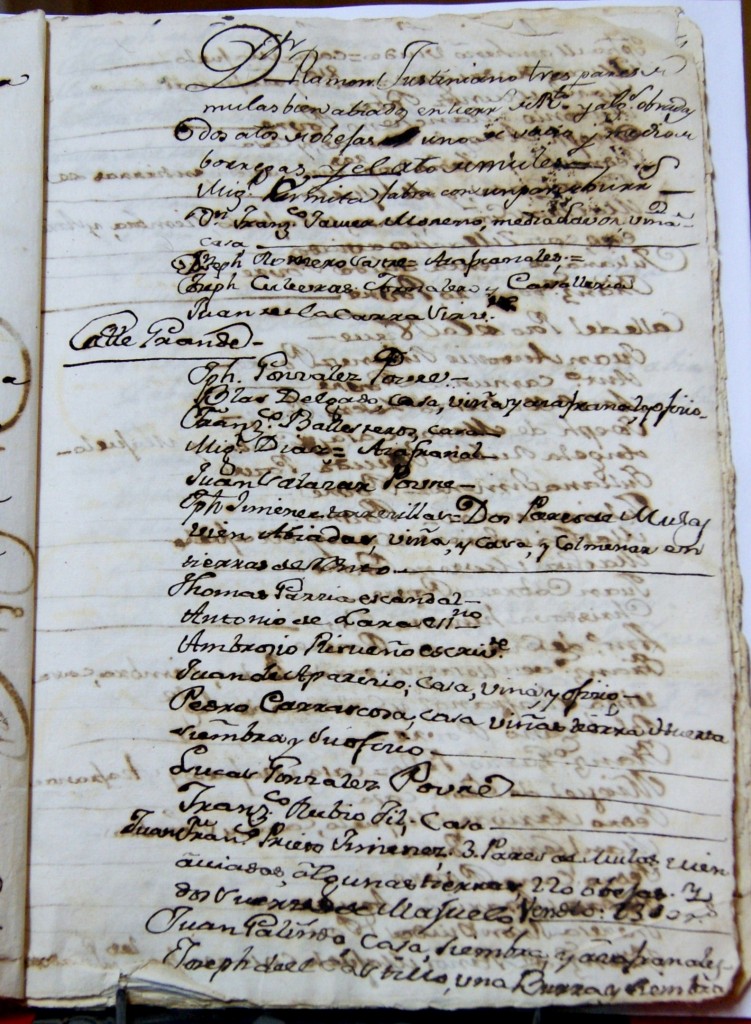 Dn Ramon Justiniano tres pares de
mulas bien abiados en tierr de Rto y
dos atos de obejas uno de y medio de
borregas, y el ato de mulas
Migl Ermita labra con un par de burr
Dn Franzco Javier Moreno, mediador, viña
casa
Joseph Romero Sastre = Azafranales =
Joseph Cuberas Jornalero y Cavalleria
Juan de la Carra Virre
Calle Grande
Jph. Gonzalez Povre
Blas Delgado, casa, viña y azafranal y ofizio
Franzco Ballesteros, casa
Migl Diaz = Azafranal
Juan Salazar Povre
Jph Jimenez = Dos Pares de Mulas
vien Abiadas, viña, y casa, y Colmenar en
tierras de
Thomas Garzia
Antonio de Lara essno
Ambrosio Risueño escrivte
Juan de Aparizio, casa, viña, y ofizio
Pedro Carrascosa, casa viñas tierra Huerta
siembra y su ofizio
Lucas Gonzalez Povre
Franzco Rubio Fil, Casa
Juan Franco Prieto Jimenez, 3. Pares de Mulas vien
aviadas, algunas tierras, 220 obejas. Y
dos de Majuelo
Juan Galindo, Casa, siembra, y azafranales
Joseph del Castillo, una Burra y siembra